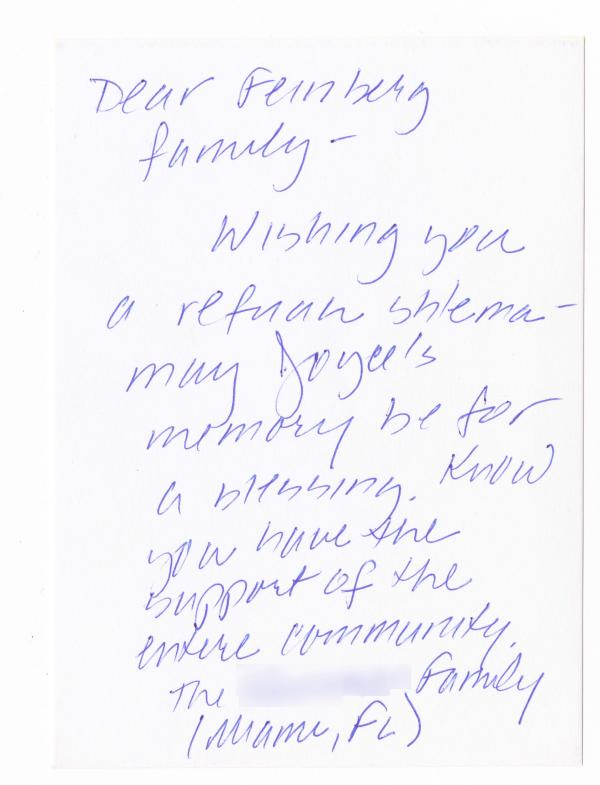 Dear Feinberg
family -
Wishing you
a refuah shlema -
may Joyce's
memory be for
a blessing. Know
you have the
support of the
entire community.
The Family
(Miami, FL)